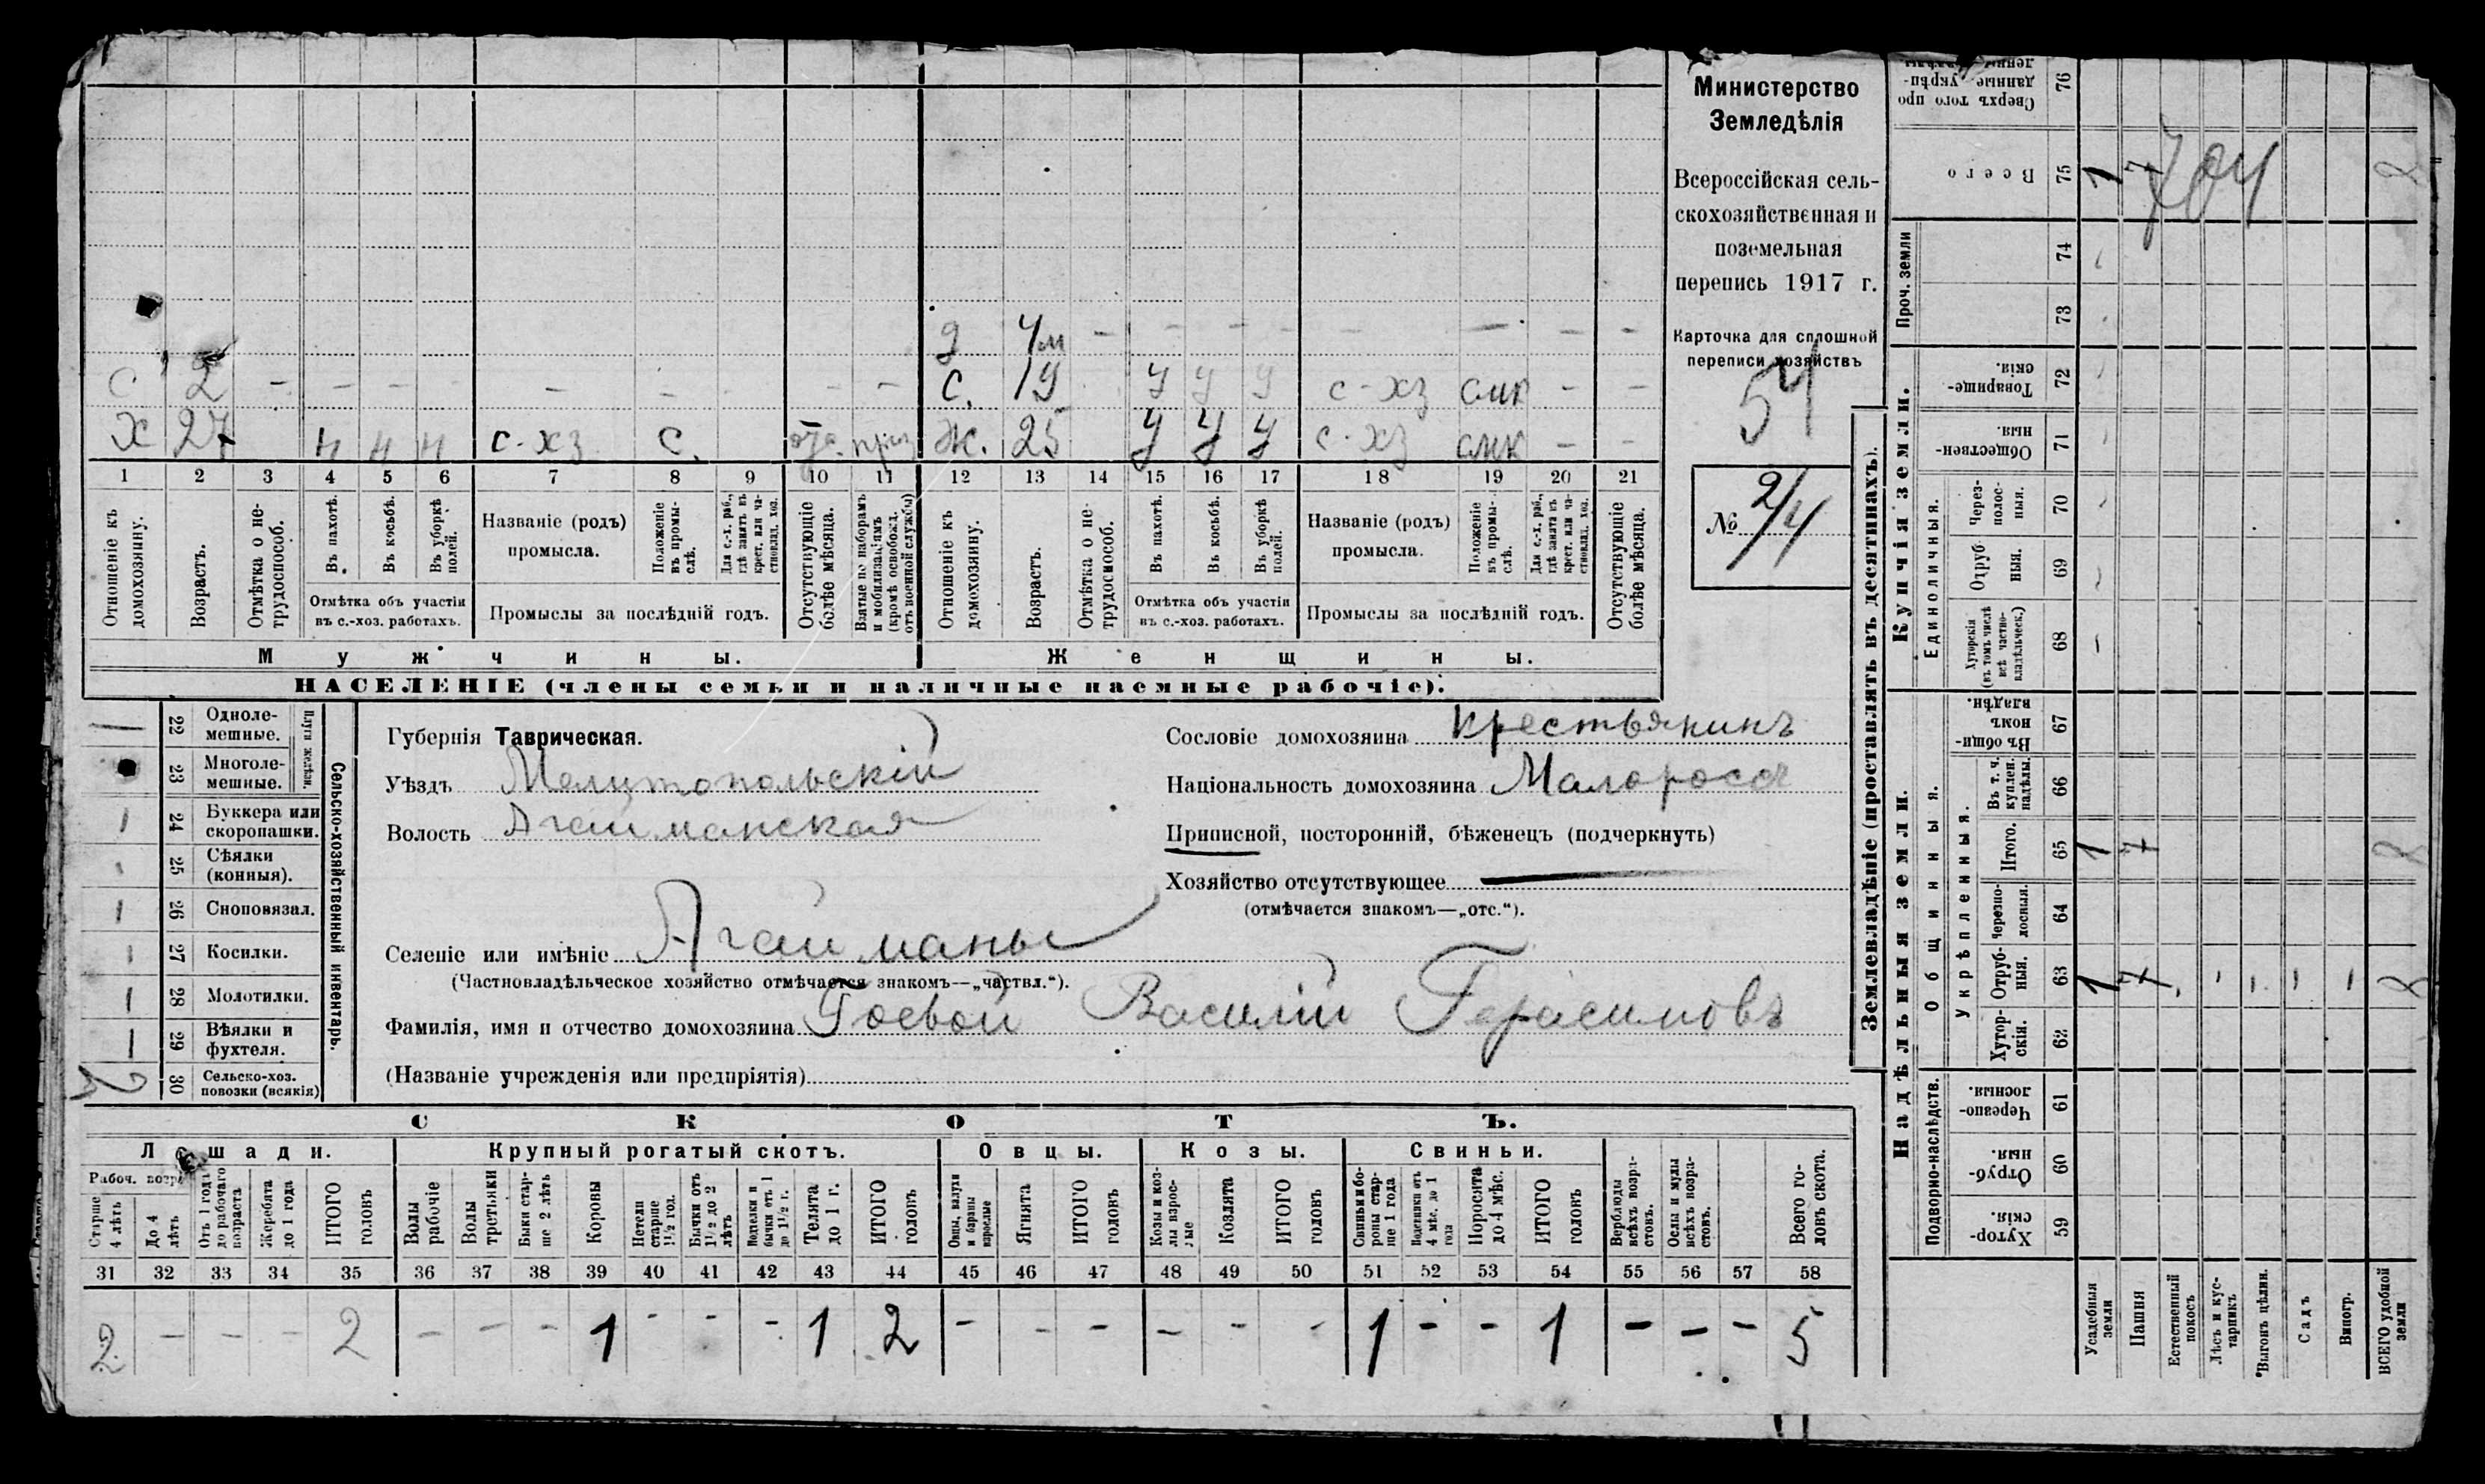 Министерство
Земледѣлія
Всероссійская сель-
скохозяйственная и
поземельная
перепись 1917 г.
Карточка для сплошной
переписи хозяйствъ
№ 2/4
д 4м - - - - - - - -
с 2 - - - - - - - - с. 19 у у у с-хз - -
х 27 н н н с-хз с. Ж. 25 у у у с-хз - -
1 2 3 4 5 6 7 8 9 10 11 12 13 14 15 16 17 18 19 20 21
Отношеніе къ домохозяину.
Возрастъ.
Отмѣтка о не-трудоспособ.
Въ пахотѣ.
Въ косьбѣ.
Въ уборкѣ полей.
Отмѣтка объ участіи
въ с.-хоз. работахъ.
Названіе (родъ)
промысла.
Положеніе въ промы-слѣ.
Для с.-х. раб., гдѣ занятъ въ крест. или ча-стновлад. хоз.
Промыслы за послѣдній годъ.
Отсутствующіе болѣе мѣсяца.
Взятые по наборамъ и мобилизаціямъ (кромѣ освобожд. отъ военной службы)
Отношеніе къ домохозяину.
Возрастъ.
Отмѣтка о не-трудоспособ.
Въ пахотѣ.
Въ косьбѣ.
Въ уборкѣ полей.
Отмѣтка объ участіи
въ с.-хоз. работахъ.
Названіе (родъ)
промысла.
Положеніе въ промы-слѣ.
Для с.-х. раб., гдѣ занята въ крест. или ча-стновлад. хоз.
Промыслы за послѣдній годъ.
Отсутствующіе болѣе мѣсяца.
Мужчины.
Женщины.
НАСЕЛЕНІЕ (члены семьи и наличные наемные рабочіе).
22 Одноле-мешные.
23 Многоле-мешные.
24 Буккера или скоропашки.
25 Сѣялки (конныя).
26 Сноповязал.
27 Косилки.
28 Молотилки.
29 Вѣялки и фухтеля.
30 Сельско-хоз. повозки (всякія)
Плуги желѣзн.
Сельско-хозяйственный инвентарь.
Губернія Таврическая.
Уѣздъ Мелитопольскій
Волость Агайманская
Сословіе домохозяина крестьянинъ
Національность домохозяина Малороссъ
Приписной, посторонній, бѣженецъ (подчеркнуть)
Хозяйство отсутствующее
(отмѣчается знакомъ—„отс.“).
Селеніе или имѣніе Агайманы
(Частновладѣльческое хозяйство отмѣчается знакомъ—„частвл.“).
Фамилія, имя и отчество домохозяина Гоевой Василій Герасимовъ
(Названіе учрежденія или предпріятія)
СКОТЪ.
Лошади. Крупный рогатый скотъ. Овцы. Козы. Свиньи.
Рабоч. возр.
Старше 4 лѣтъ
До 4 лѣтъ
Отъ 1 года до рабочаго возраста
Жеребята до 1 года
ИТОГО головъ
Волы рабочіе
Волы третьяки
Быки стар-ше 2 лѣтъ
Коровы
Нетели старше 1½ год.
Бычки отъ 1½ до 2 лѣтъ
Телки и бычки отъ 1 до 1½ г.
Телята до 1 г.
ИТОГО головъ
Овцы, валухи и бараны взрослые
Ягнята
ИТОГО головъ
Козы и коз-лы взрос-лые
Козлята
ИТОГО головъ
Свиньи и бо-ровы стар-ше 1 года
Подсвинки отъ 4 мѣс. до 1 года
Поросята до 4 мѣс.
ИТОГО головъ
Верблюды всѣхъ возра-стовъ.
Ослы и мулы всѣхъ возра-стовъ.
Всего го-ловъ скота.
31 32 33 34 35 36 37 38 39 40 41 42 43 44 45 46 47 48 49 50 51 52 53 54 55 56 57 58
2 - - - 2 - - - 1 - - - 1 2 - - - - - - 1 - - 1 - - - 5
Землевладѣніе (проставлять въ десятинахъ).
Купчія земли.
Надѣльныя земли.
Единоличныя.
Общинныя.
Укрѣпленныя.
Подворно-наслѣдств.
Проч. земли
76 Сверхъ того про данные укрѣп-
75 Всего 1 7
704
74
73
72 Товарище-скія.
71 Обществен-ныя.
70 Через-полос-ныя.
69 Отруб ныя.
68 Хуторскія (въ томъ числѣ всѣ частно-владѣльческ.)
67 Въ общи-номъ владѣн.
66 Въ т. ч. куплен. надѣлы.
65 Итого. 1 7
64 Черезпо-лосныя.
63 Отруб-ныя. 1 7
62 Хутор-скія.
61 Черезпо-лосныя.
60 Отруб-ныя.
59 Хутор-скія.
Усадебныя земли
Пашня
Естественный покосъ
Лѣсъ и кус-тарникъ
Выгонъ цѣлин.
Садъ
Виногр.
ВСЕГО удобной земли